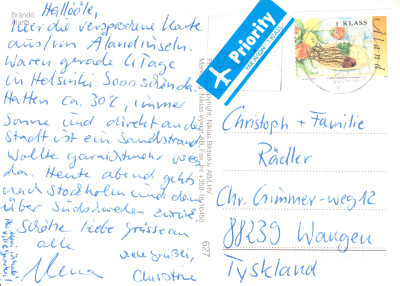 Brändö
Åland
Hallööle,
hier die versprochene Karte
aus/von Ålandinseln.
Waren gerade 4 Tage
in Helsinki. Sooo schön da.
Hatten ca. 30C, immer
Sonne und direkt an der
Stadt ist ein Sandstrand
Wollte gar nicht mehr weg
da. Heute abend geht's
nach Stockholm und dann
über Südschweden zurück.
Schöne liebe Grüsse an
alle
viele Grüße,
Christine
Priority
1 KLASS
Åland
627
Christoph + Familie
Rädler
Chr. Grimmer-weg 12
88239 Wangen
Tyskland